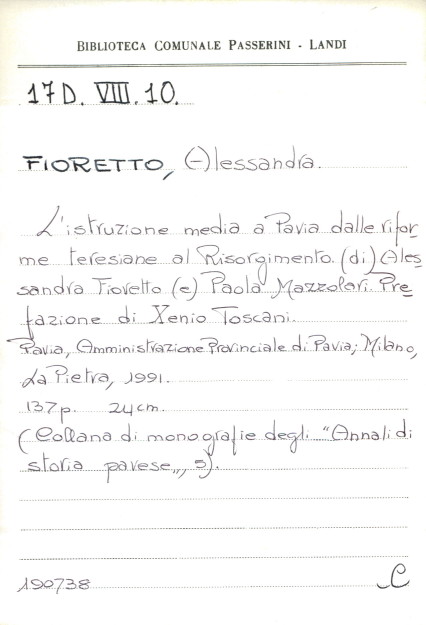 BIBLIOTECA COMUNALE PASSERINI - LANDI
17 D. VIII. 10.
FIORETTO, Alessandra.
L'istruzione media a Pavia dalle rifor-
me teresiane al Risorgimento. (di) Ales-
sandra Fioretto (e) Paola Mazzolari. Pre-
fazione di Xenio Toscani.
Pavia, Amministrazione Provinciale di Pavia; Milano,
La Pietra, 1991.
137 p. 24 cm.
(Collana di monografie degli "Annali di
storia pavese„, 5).
190738 C